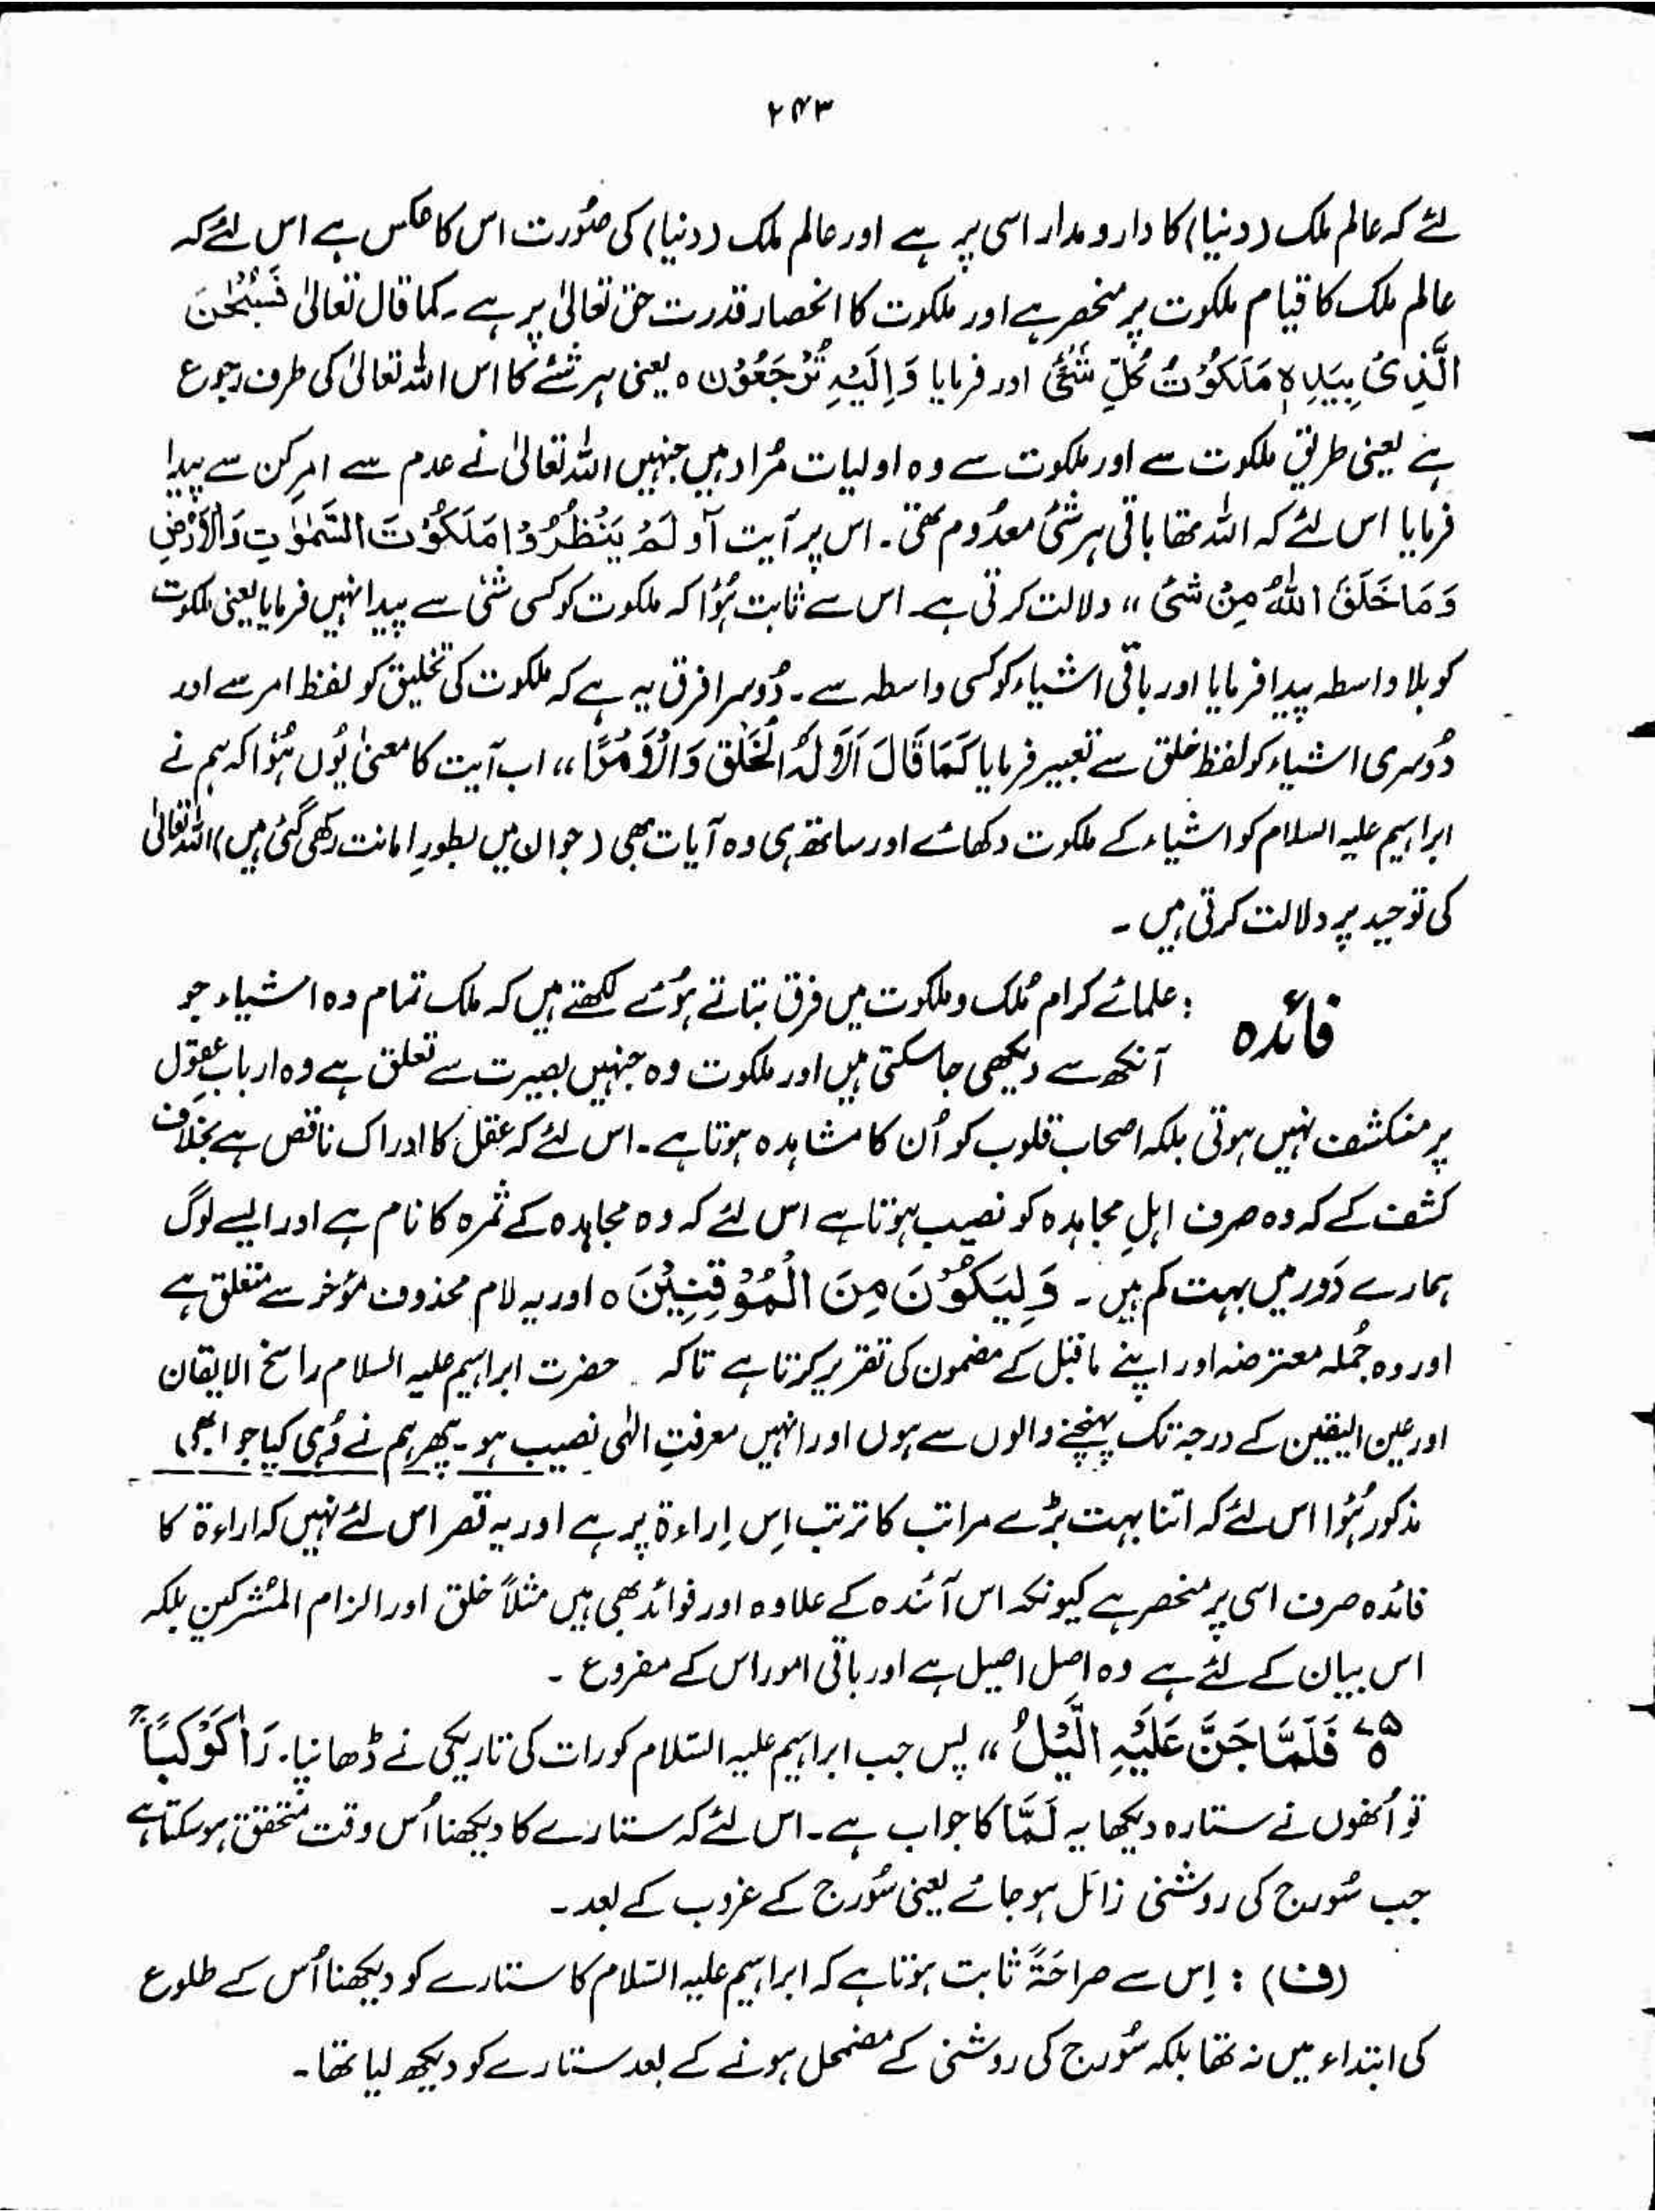 ۲۴۳
لئے کہ عالم ملک (دنیا) کا دار و مدار اسی پر ہے اور عالم ملک (دنیا) کی صُورت اس کا عکس ہے اس لئے کہ
عالم ملک کا قیام ملکوت پر منحصر ہے اور ملکوت کا انحصار قدرت حق تعالیٰ پر ہے۔ کما قال تعالیٰ فَسُبْحٰنَ
الَّذِیْ بِیَدِہٖ مَلَکُوْتُ کُلِّ شَیْءٍ اور فرمایا وَاِلَیْہِ تُرْجَعُوْن ہ یعنی ہر شئے کا اس اللہ تعالیٰ کی طرف رجوع
ہے یعنی طریق ملکوت سے اور ملکوت سے وہ اولیات مُراد ہیں جنہیں اللہ تعالیٰ نے عدم سے امرِ کن سے پیدا
فرمایا اس لئے کہ اللہ تھا باقی ہر شئ معدُوم تھی۔ اس پر آیت اَوَلَمْ یَنْظُرُوْا مَلَکُوْتَ السَّمٰوٰتِ وَالْاَرْضِ
وَمَا خَلَقَ اللّٰہُ مِنْ شَیْ ،، دلالت کرتی ہے۔ اس سے ثابت ہُوا کہ ملکوت کو کسی شئی سے پیدا نہیں فرمایا یعنی ملکوت
کو بلا واسطہ پیدا فرمایا اور باقی اشیاء کو کسی واسطہ سے۔ دُوسرا فرق یہ ہے کہ ملکوت کی تخلیق کو لفظ امر سے اور
دُوسری اشیاء کو لفظ خلق سے تعبیر فرمایا کَمَا قَالَ اَلَا لَہُ الْخَلْقُ وَالْاَمْرُ ،، اب آیت کا معنیٰ یُوں ہُوا کہ ہم نے
ابراہیم علیہ السلام کو اشیاء کے ملکوت دکھائے اور ساتھ ہی وہ آیات بھی (جو ان میں بطورِ امانت رکھی گئی ہیں) اللہ تعالیٰ
کی توحید پر دلالت کرتی ہیں۔
فائدہ : علمائے کرام مُلک و ملکوت میں فرق بتاتے ہُوئے لکھتے ہیں کہ ملک تمام وہ اشیاء جو
آنکھ سے دیکھی جا سکتی ہیں اور ملکوت وہ جنہیں بصیرت سے تعلق ہے وہ اربابِ عقول
پر منکشف نہیں ہوتی بلکہ اصحاب قلوب کو اُن کا مشاہدہ ہوتا ہے۔ اس لئے کہ عقل کا ادراک ناقص ہے بخلاف
کشف کے کہ وہ صرف اہلِ مجاہدہ کو نصیب ہوتا ہے اس لئے کہ وہ مجاہدہ کے ثمرہ کا نام ہے اور ایسے لوگ
ہمارے دَور میں بہت کم ہیں۔ وَلِیَکُوْنَ مِنَ الْمُوْقِنِیْنَ ہ اور یہ لام محذوف مؤخر سے متعلق ہے
اور وہ جُملہ معترضہ اور اپنے ماقبل کے مضمون کی تقریر کرتا ہے تاکہ حضرت ابراہیم علیہ السلام راسخ الایقان
اور عین الیقین کے درجہ تک پہنچنے والوں سے ہوں اور انہیں معرفتِ الٰہی نصیب ہو۔ پھر ہم نے وُہی کیا جو ابھی
مذکور ہُوا اس لئے کہ اتنا بہت بڑے مراتب کا ترتب اِس اِراءۃ پر ہے اور یہ قصر اس لئے نہیں کہ اراءۃ کا
فائدہ صرف اسی پر منحصر ہے کیونکہ اس آئندہ کے علاوہ اور فوائد بھی ہیں مثلاً خلق اور الزام المشرکین بلکہ
اس بیان کے لئے ہے وہ اصل اصیل ہے اور باقی امور اس کے مفروع۔
۷۵ فَلَمَّا جَنَّ عَلَیْہِ الَّیْلُ ،، پس جب ابراہیم علیہ السّلام کو رات کی تاریکی نے ڈھانپا۔ رَاٰ کَوْکَبًا
تو اُنھوں نے ستارہ دیکھا یہ لَمَّا کا جواب ہے۔ اس لئے کہ ستارے کا دیکھنا اُس وقت متحقق ہو سکتا ہے
جب سُورج کی روشنی زائل ہو جائے یعنی سُورج کے غروب کے بعد۔
(ف) : اِس سے صراحَۃً ثابت ہوتا ہے کہ ابراہیم علیہ السّلام کا ستارے کو دیکھنا اُس کے طلوع
کی ابتداء میں نہ تھا بلکہ سُورج کی روشنی کے مضمحل ہونے کے بعد ستارے کو دیکھ لیا تھا۔